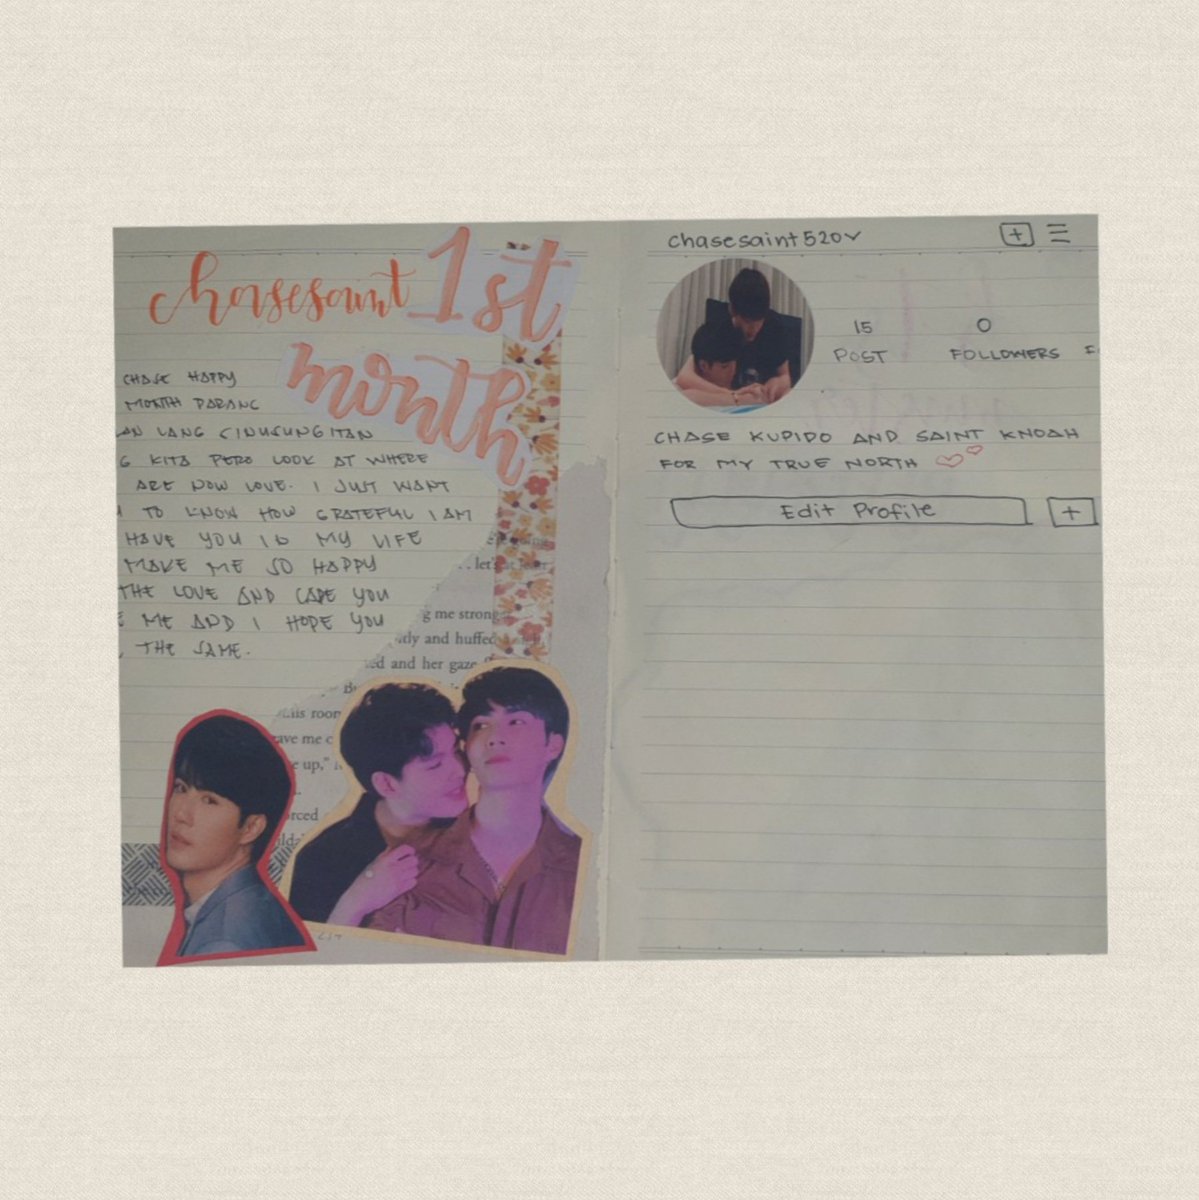 chasesaint 1st
month
CHASE HAPPY
MONTH PARANG
LANG SINUSUNGITAN
KITA PERO LOOK AT WHERE
ARE NOW LOVE. I JUST WANT
TO KNOW HOW GRATEFUL I AM
HAVE YOU IN MY LIFE
MAKE ME SO HAPPY
THE LOVE AND CARE YOU
ME AND I HOPE YOU
THE SAME.
let's at
g me strong
and huffed
and her gaze
this room
me
up,"
chasesaint520
+
15
0
POST
FOLLOWERS
CHASE KUPIDO AND SAINT KNOAH
FOR MY TRUE NORTH
Edit Profile
+